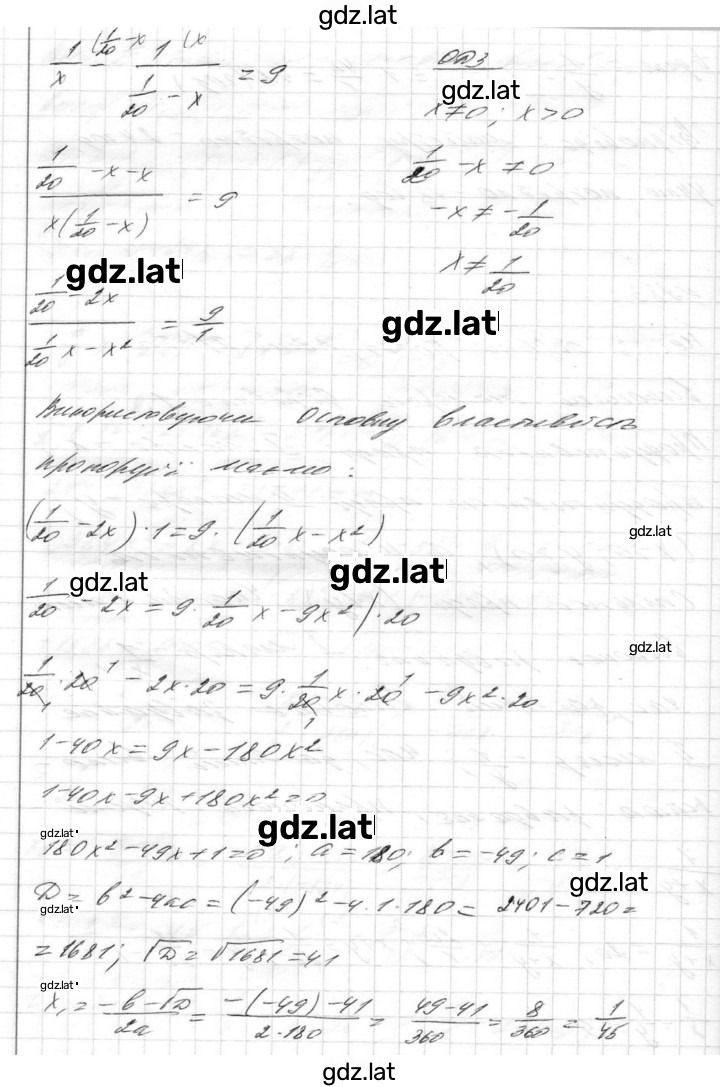 gdz.lat
1/x (1/20 - x - 1 (x / (1/20 - x) = 9
ОДЗ
gdz.lat
x ≠ 0; x > 0
(1/20 - x - x) / (x(1/20 - x)) = 9
1/20 - x ≠ 0
-x ≠ -1/20
gdz.lat
x ≠ 1/20
(1/20 - 2x) / (1/20 x - x²) = 9/1
gdz.lat
Використовуючи основну властивість
пропорції маємо:
(1/20 - 2x) · 1 = 9 · (1/20 x - x²)
gdz.lat
gdz.lat
gdz.lat
1/20 - 2x = 9 · 1/20 x - 9x² | · 20
gdz.lat
1/20 · 20 - 2x · 20 = 9 · 1/20 x · 20 - 9x² · 20
1 - 40x = 9x - 180x²
1 - 40x - 9x + 180x² = 0
gdz.lat
gdz.lat
180x² - 49x + 1 = 0; a = 180; b = -49; c = 1
gdz.lat
D = b² - 4ac = (-49)² - 4 · 1 · 180 = 2401 - 720 =
gdz.lat
= 1681; √D = √1681 = 41
gdz.lat
x₁ = (-b - √D) / 2a = (-(-49) - 41) / (2 · 180) = (49 - 41) / 360 = 8/360 = 1/45
gdz.lat